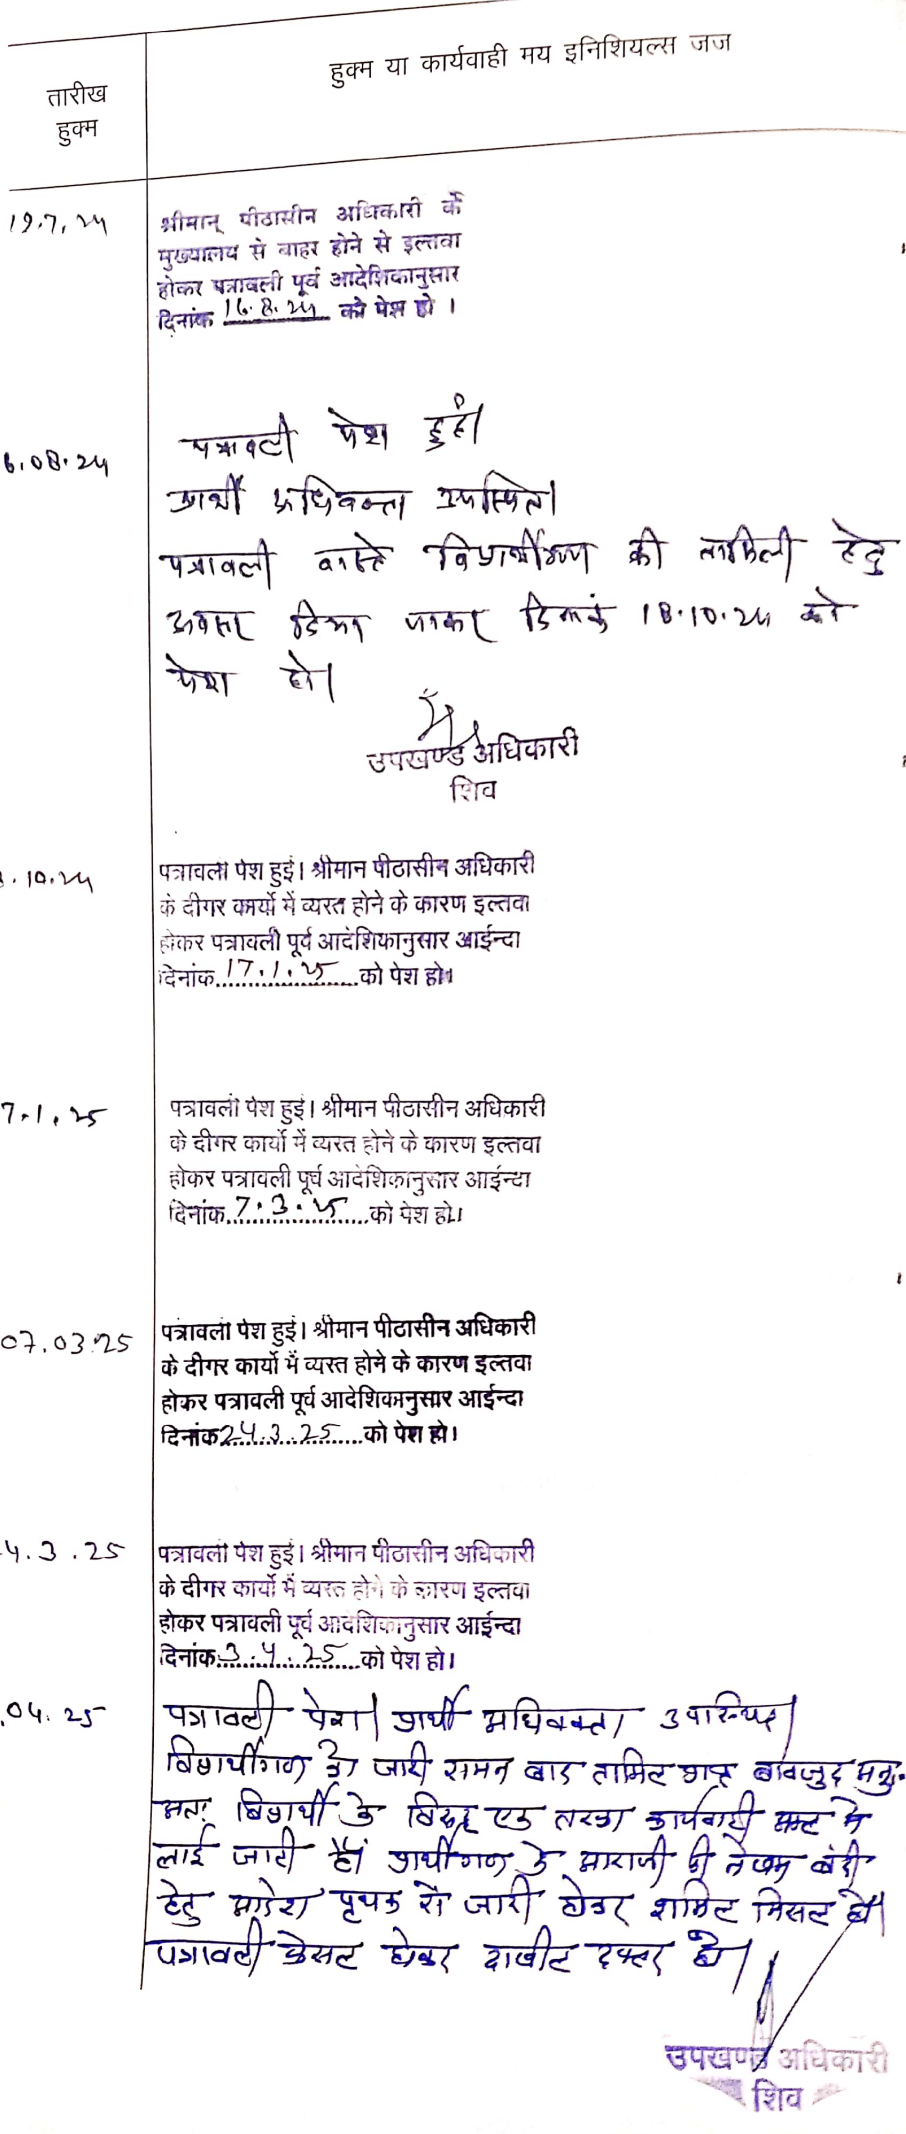 तारीख
हुक्म
हुक्म या कार्यवाही मय इनिशियल्स जज
19.7.24
श्रीमान् पीठासीन अधिकारी के
मुख्यालय से बाहर होने से इल्तवा
होकर पत्रावली पूर्व आदेशिकानुसार
दिनांक 16.8.24 को पेश हो ।
6.08.24
पत्रावली पेश हुई।
प्रार्थी अधिवक्ता उपस्थित।
पत्रावली वास्ते विप्रार्थीगण की तामिली हेतु
अवसर दिया जाकर दिनांक 18.10.24 को
पेश हो।
उपखण्ड अधिकारी
शिव
.10.24
पत्रावली पेश हुई। श्रीमान पीठासीन अधिकारी
के दीगर कार्यो में व्यस्त होने के कारण इल्तवा
होकर पत्रावली पूर्व आदेशिकानुसार आईन्दा
दिनांक 17.1.25 को पेश हो।
7.1.25
पत्रावली पेश हुई। श्रीमान पीठासीन अधिकारी
के दीगर कार्यो में व्यस्त होने के कारण इल्तवा
होकर पत्रावली पूर्व आदेशिकानुसार आईन्दा
दिनांक 7.3.25 को पेश हो।
07.03.25
पत्रावली पेश हुई। श्रीमान पीठासीन अधिकारी
के दीगर कार्यो में व्यस्त होने के कारण इल्तवा
होकर पत्रावली पूर्व आदेशिकानुसार आईन्दा
दिनांक 24.3.25 को पेश हो।
4.3.25
पत्रावली पेश हुई। श्रीमान पीठासीन अधिकारी
के दीगर कार्यो में व्यस्त होने के कारण इल्तवा
होकर पत्रावली पूर्व आदेशिकानुसार आईन्दा
दिनांक 3.4.25 को पेश हो।
.04.25
पत्रावली पेश। प्रार्थी अधिवक्ता उपस्थित।
विप्रार्थीगण के जारी समन बाद तामिल प्राप्त बावजुद अनु.
अतः विप्रार्थी के विरूद्ध एक तरफा कार्यवाही अमल मे
लाई जाती है। प्रार्थीगण के आराजी की नेखम बंदी
हेतु आदेश पृथक से जारी होकर शामिल मिसल हो।
पत्रावली फैसल होकर दाखील दफ्तर हो।
उपखण्ड अधिकारी
शिव